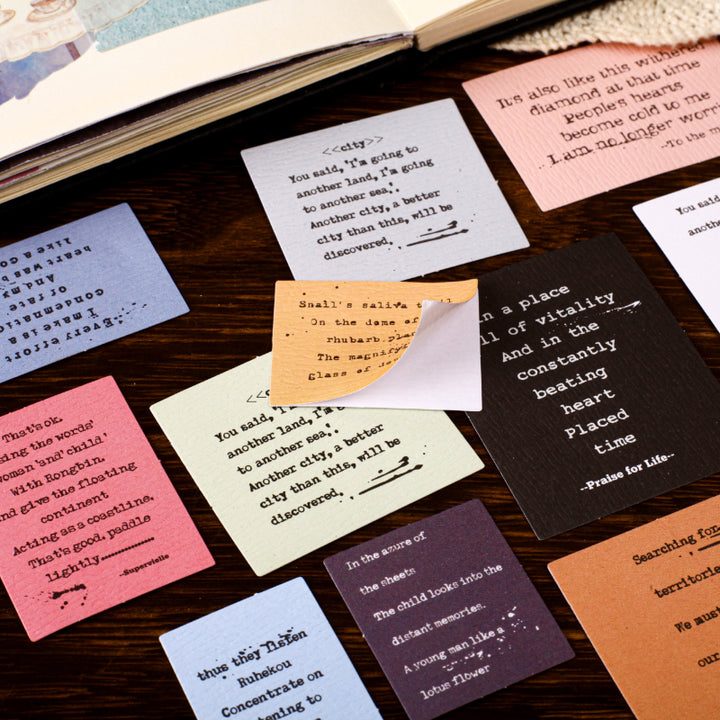 It's also like this withered
diamond at that time
People's hearts
become cold to me
I am no longer
--To the
<<city>>
You said, 'I'm going to
another land, I'm going
to another sea.'
Another city, a better
city than this, will be
discovered.
You said
anothe
Every effort
I make is a
Condemnation
of rate
And my
heart was b
like a co
Snail's saliva
On the dome of
rhubarb plan
The magnify
glass of
n a place
ll of vitality
And in the
constantly
beating
heart
Placed
time
--Praise for Life--
<<c
You said,
another land, I'm
to another sea.'
Another city, a better
city than this, will be
discovered.
That's ok.
sing the words'
woman'and'child'
With Rongbin.
nd give the floating
continent
Acting as a coastline.
That's good, paddle
lightly
--Supervielle
In the azure of
the sheets
The child looks into the
distant memories.
A young man like a
lotus flower
thus they listen
Ruhekou
Concentrate on
tening to
Searching for
territorie
We mus
our